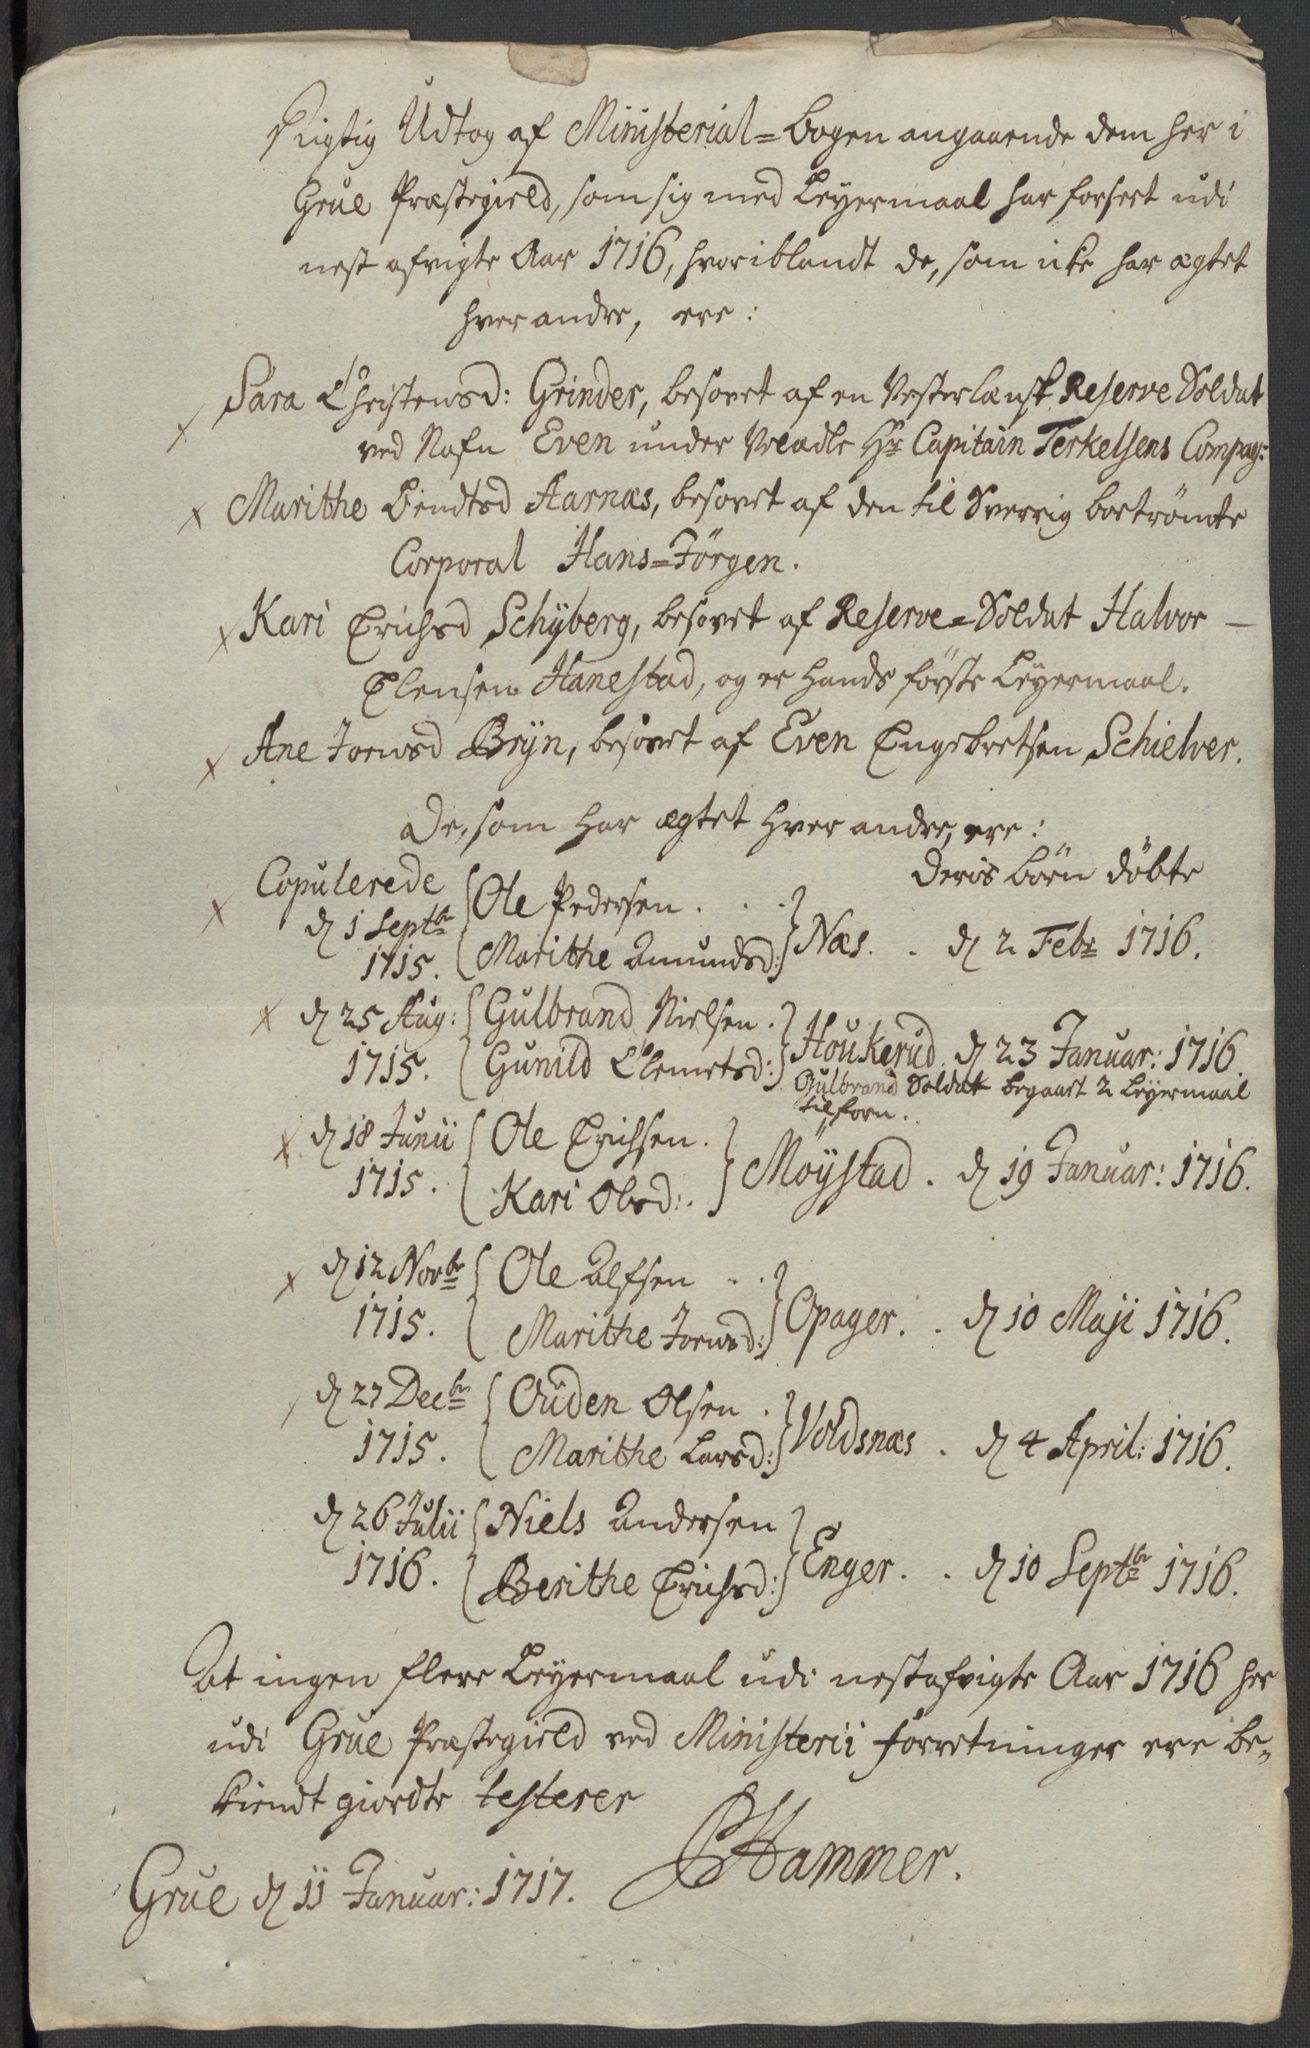 Rigtig Udtog af Ministerial=bogen angaaende dem her i
Grue Præstegield, som sig med Leyermaal har forseet udi
nest afvigte Aar 1716, hvoriblandt de, som icke har ægtet
hver andre, ere:
Sara Christensd: Grinder, besovet af en Vesterlænsk Reserve Soldat
ved Nafn Even under Velædle Hr Capitain Terkelsens Compag:
Marithe Bendtsd Aarnæs, besovet af den til Sverrig bortrömte
Corporal Hans=Jörgen.
Kari Erichsd Schÿberg, besovet af Reserve=Soldat Halvor –
Elensen Hanestad, og er hands förste Leyermaal.
Ane Joensd Brÿn, besovet af Even Engebretsen Schielver.
De, som har ægtet hver andre, ere:
Copulerede deris börn döbte
d 1 Septbr 1715. Ole Pedersen . . . Næs. . d 2 Febr 1716.
Marithe Amundsd:
d 25 Aug: 1715. Gulbrand Nielsen. Houkerud. d 23 Januar: 1716
Gunild Clemetsd: Gulbrand Soldat begaaet 2 Leyermaal
tilforn.
d 18 Junii 1715. Ole Erichsen. Möÿstad. d 19 Januar: 1716.
Kari Olsd:.
d 12 Novbr 1715. Ole Alfsen . . Opager. . d 10 Maji 1716.
Marithe Joensd:
d 27 Decbr 1715. Ouden Olsen . Voldsnæs . d 4 April: 1716.
Marithe Larsd:
d 26 Julii 1716. Niels Andersen Enger. . d 10 Septbr 1716.
Berithe Erichsd:
At ingen flere Leÿermaal udi nestafvigte Aar 1716 her
udi Grue Præstegield ved Ministerii forretninger ere be-
kiendt giordte testerer
Hammer.
Grue d 11 Januar: 1717.